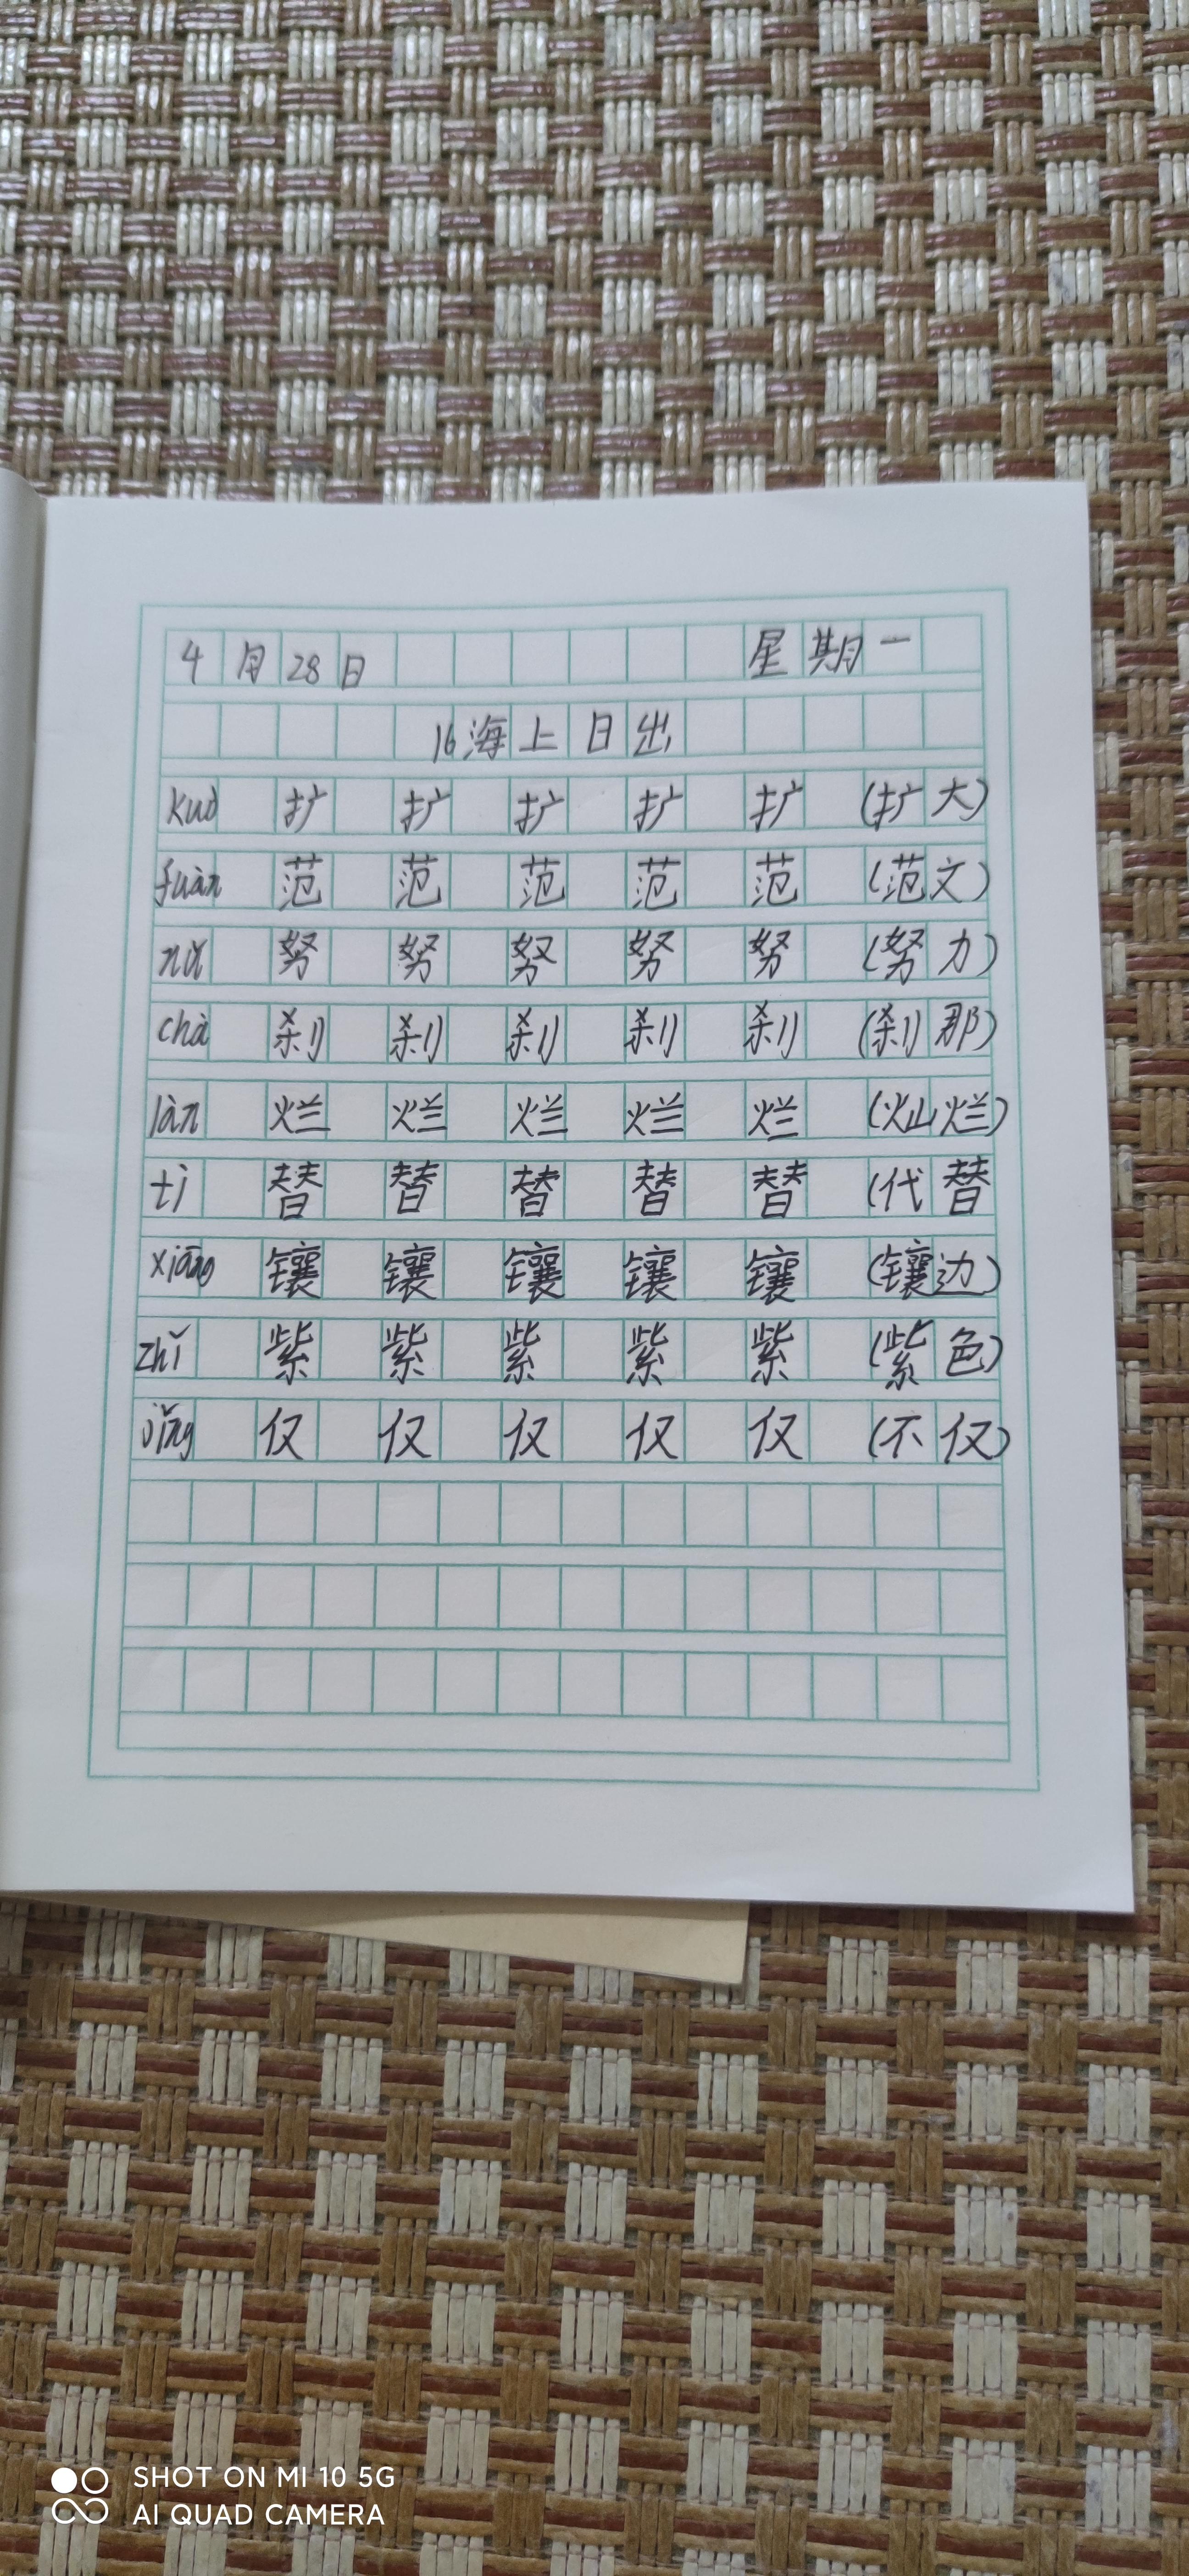 4月28日 星期一
16海上日出
kuò 扩 扩 扩 扩 扩 (扩大)
fuàn 范 范 范 范 范 (范文)
nǔ 努 努 努 努 努 (努力)
chà 刹 刹 刹 刹 刹 (刹那)
làn 烂 烂 烂 烂 烂 (灿烂)
tì 替 替 替 替 替 (代替
xiāng 镶 镶 镶 镶 镶 (镶边)
zhǐ 紫 紫 紫 紫 紫 (紫色)
jǐng 仅 仅 仅 仅 仅 (不仅)
SHOT ON MI 10 5G
AI QUAD CAMERA